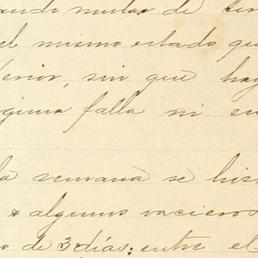 mular de
el mismo estado qu
terior, sin que hay
guna falla ni en
la semana se hici
algunos vacieros
o de 3 días: entre el